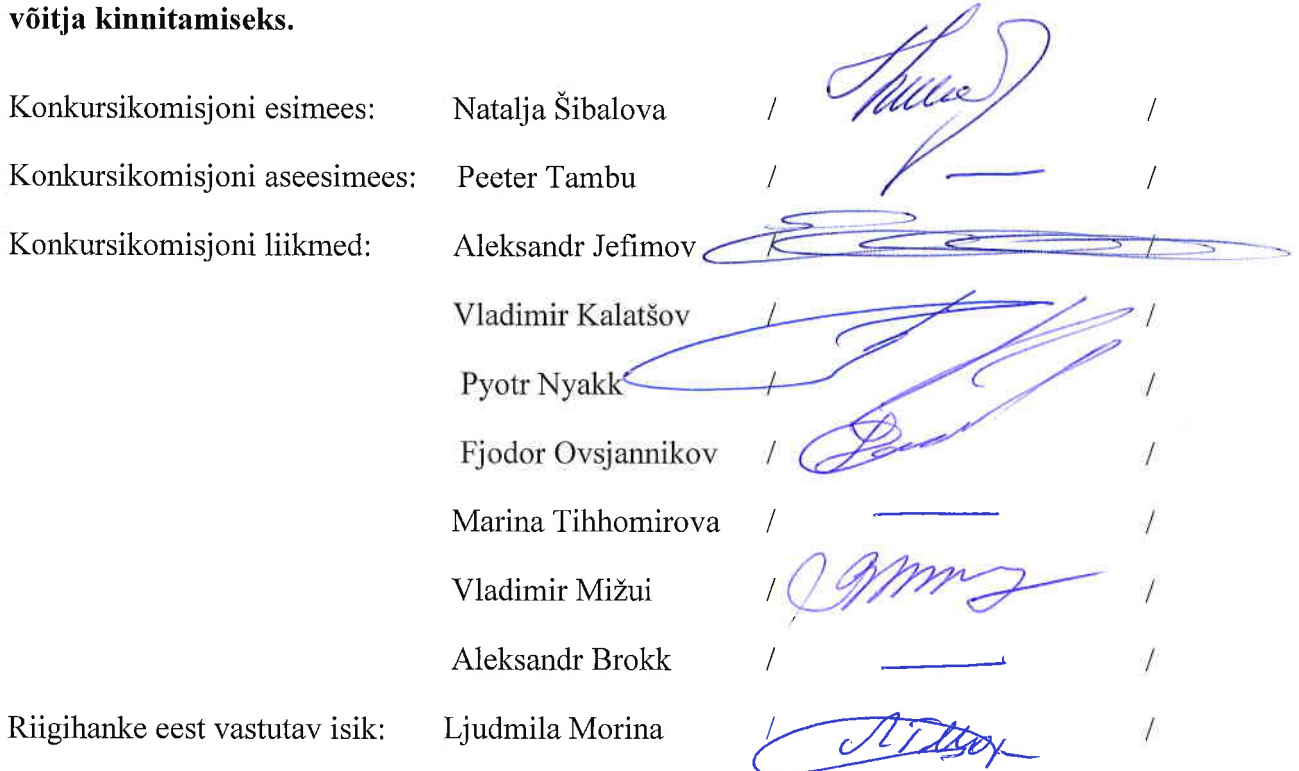 võitja kinnitamiseks.
Konkursikomisjoni esimees: Natalja Šibalova / /
Konkursikomisjoni aseesimees: Peeter Tambu / — /
Konkursikomisjoni liikmed: Aleksandr Jefimov / /
Vladimir Kalatšov / /
Pyotr Nyakk / /
Fjodor Ovsjannikov / /
Marina Tihhomirova / — /
Vladimir Mižui / /
Aleksandr Brokk / — /
Riigihanke eest vastutav isik: Ljudmila Morina / /